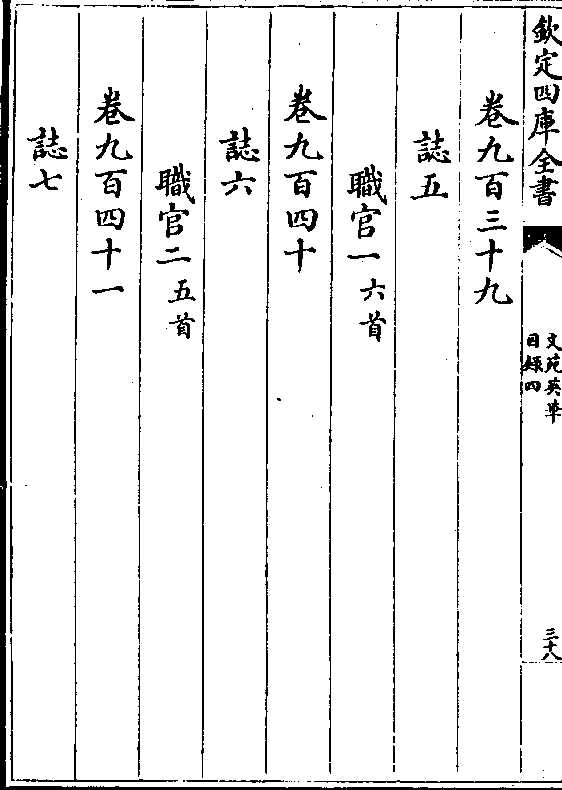 欽定四庫全書
文苑英華
目録四
三十八
卷九百三十九
誌五
職官一六首
卷九百四十
誌六
職官二五首
卷九百四十一
誌七